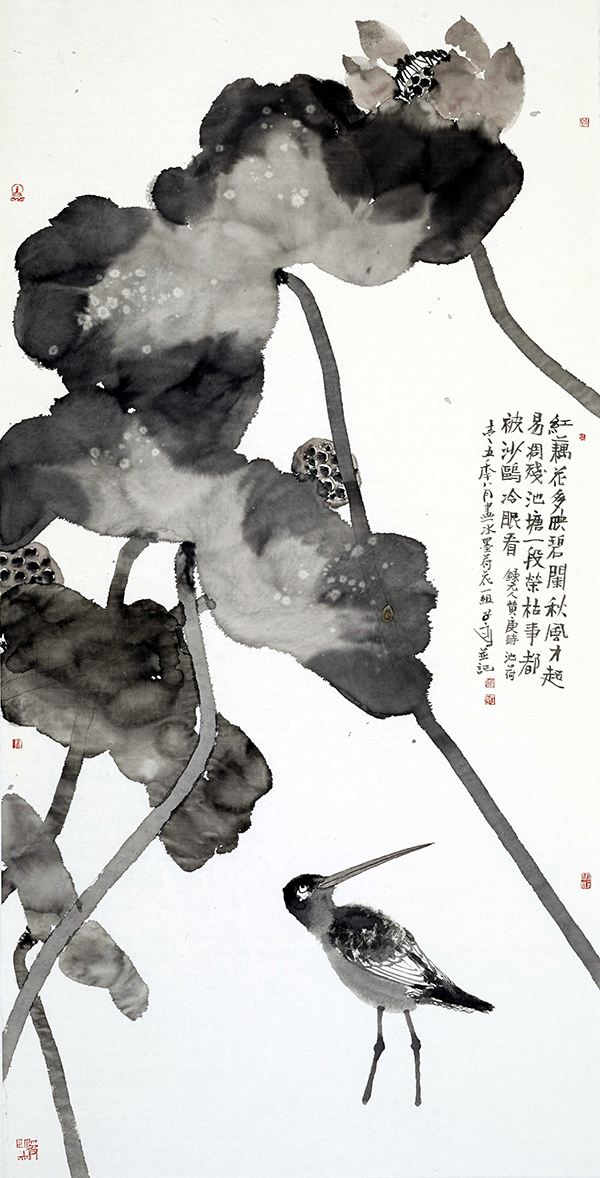 紅藕花多映碧闌秋風才起
易凋殘池塘一段榮枯事都
被沙鷗冷眼看 錄元人黄庚詩池荷
五年八月畫水墨荷花一組 並記